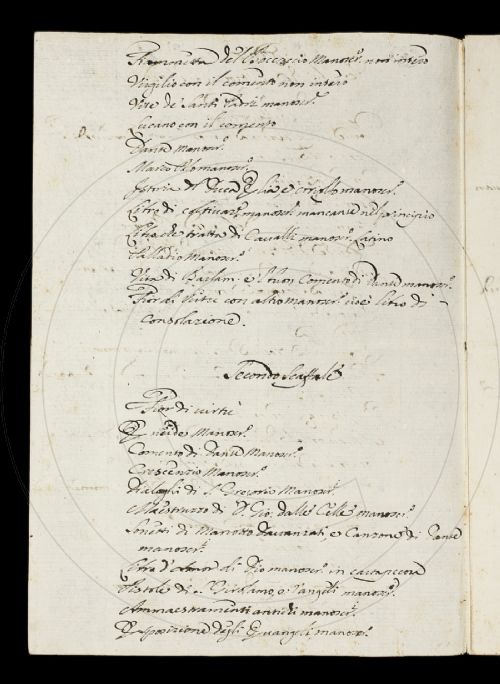 Fiammetta del Boccaccio Manoscr.º non intero
Virgilio con il comento non intero
Vite de' Santi Padri manoscr.º
Lucano con il comento
Dante manoscr.º
Marco Polo manoscr.º
Istoria di Lucca manoscr.º
Libro di manoscr.º mancante nel principio
Libro che tratta di Cavalli manoscr.º Latino
Palladio Manoscr.º
Vita di Barlam. e Comento di Dante manoscr.º
Fior di Virtù con altro manoscr.º cioè libro di
Consolazione.
Secondo Scaffale
Fior di virtù
Eneide Manoscr.º
Comento di Dante Manoscr.º
Crescenzio Manoscr.º
Dialoghi di S. Gregorio Manoscr.º
Maestruzzo di D. Gio. dalle Celle manoscr.º
Sonetti di Mariotto Davanzati, e Canzone di Dante
manoscr.º
Libro d'Amor di Dio manoscr.º in cartapecora
Pistole di S. Girolamo, e Vangeli manoscr.º
Ammaestramenti antichi manoscr.º
Esposizione degli Evangeli manoscr.º